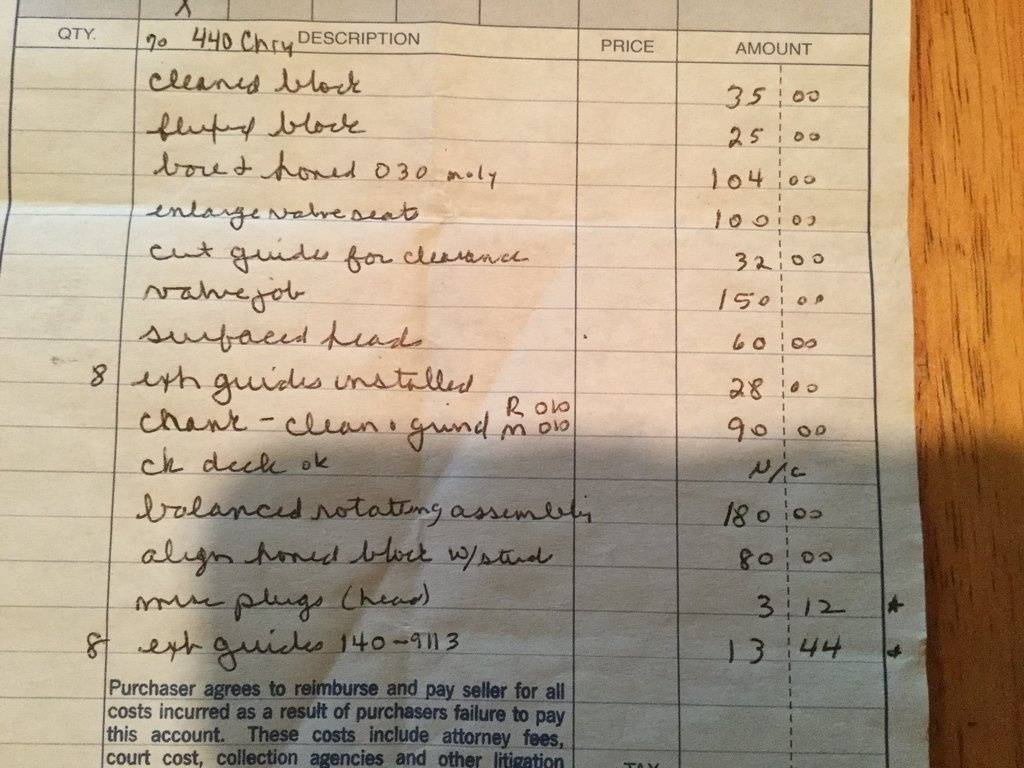 X
QTY. DESCRIPTION PRICE AMOUNT
70 440 Chry
cleaned block 35 00
block 25 00
bore & honed 030 moly 104 00
enlarge valve seats 100 00
cut guides for clearance 32 00
valve job 150 00
surfaced heads 60 00
8 exh guides installed 28 00
crank - clean & grind R 010 M 010 90 00
ck deck ok N/C
balanced rotating assembly 180 00
align honed block w/stud 80 00
misc plugs (head) 3 12 *
8 exh guides 140-9113 13 44 *
Purchaser agrees to reimburse and pay seller for all
costs incurred as a result of purchasers failure to pay
this account. These costs include attorney fees,
court cost, collection agencies and other litigation
TAX